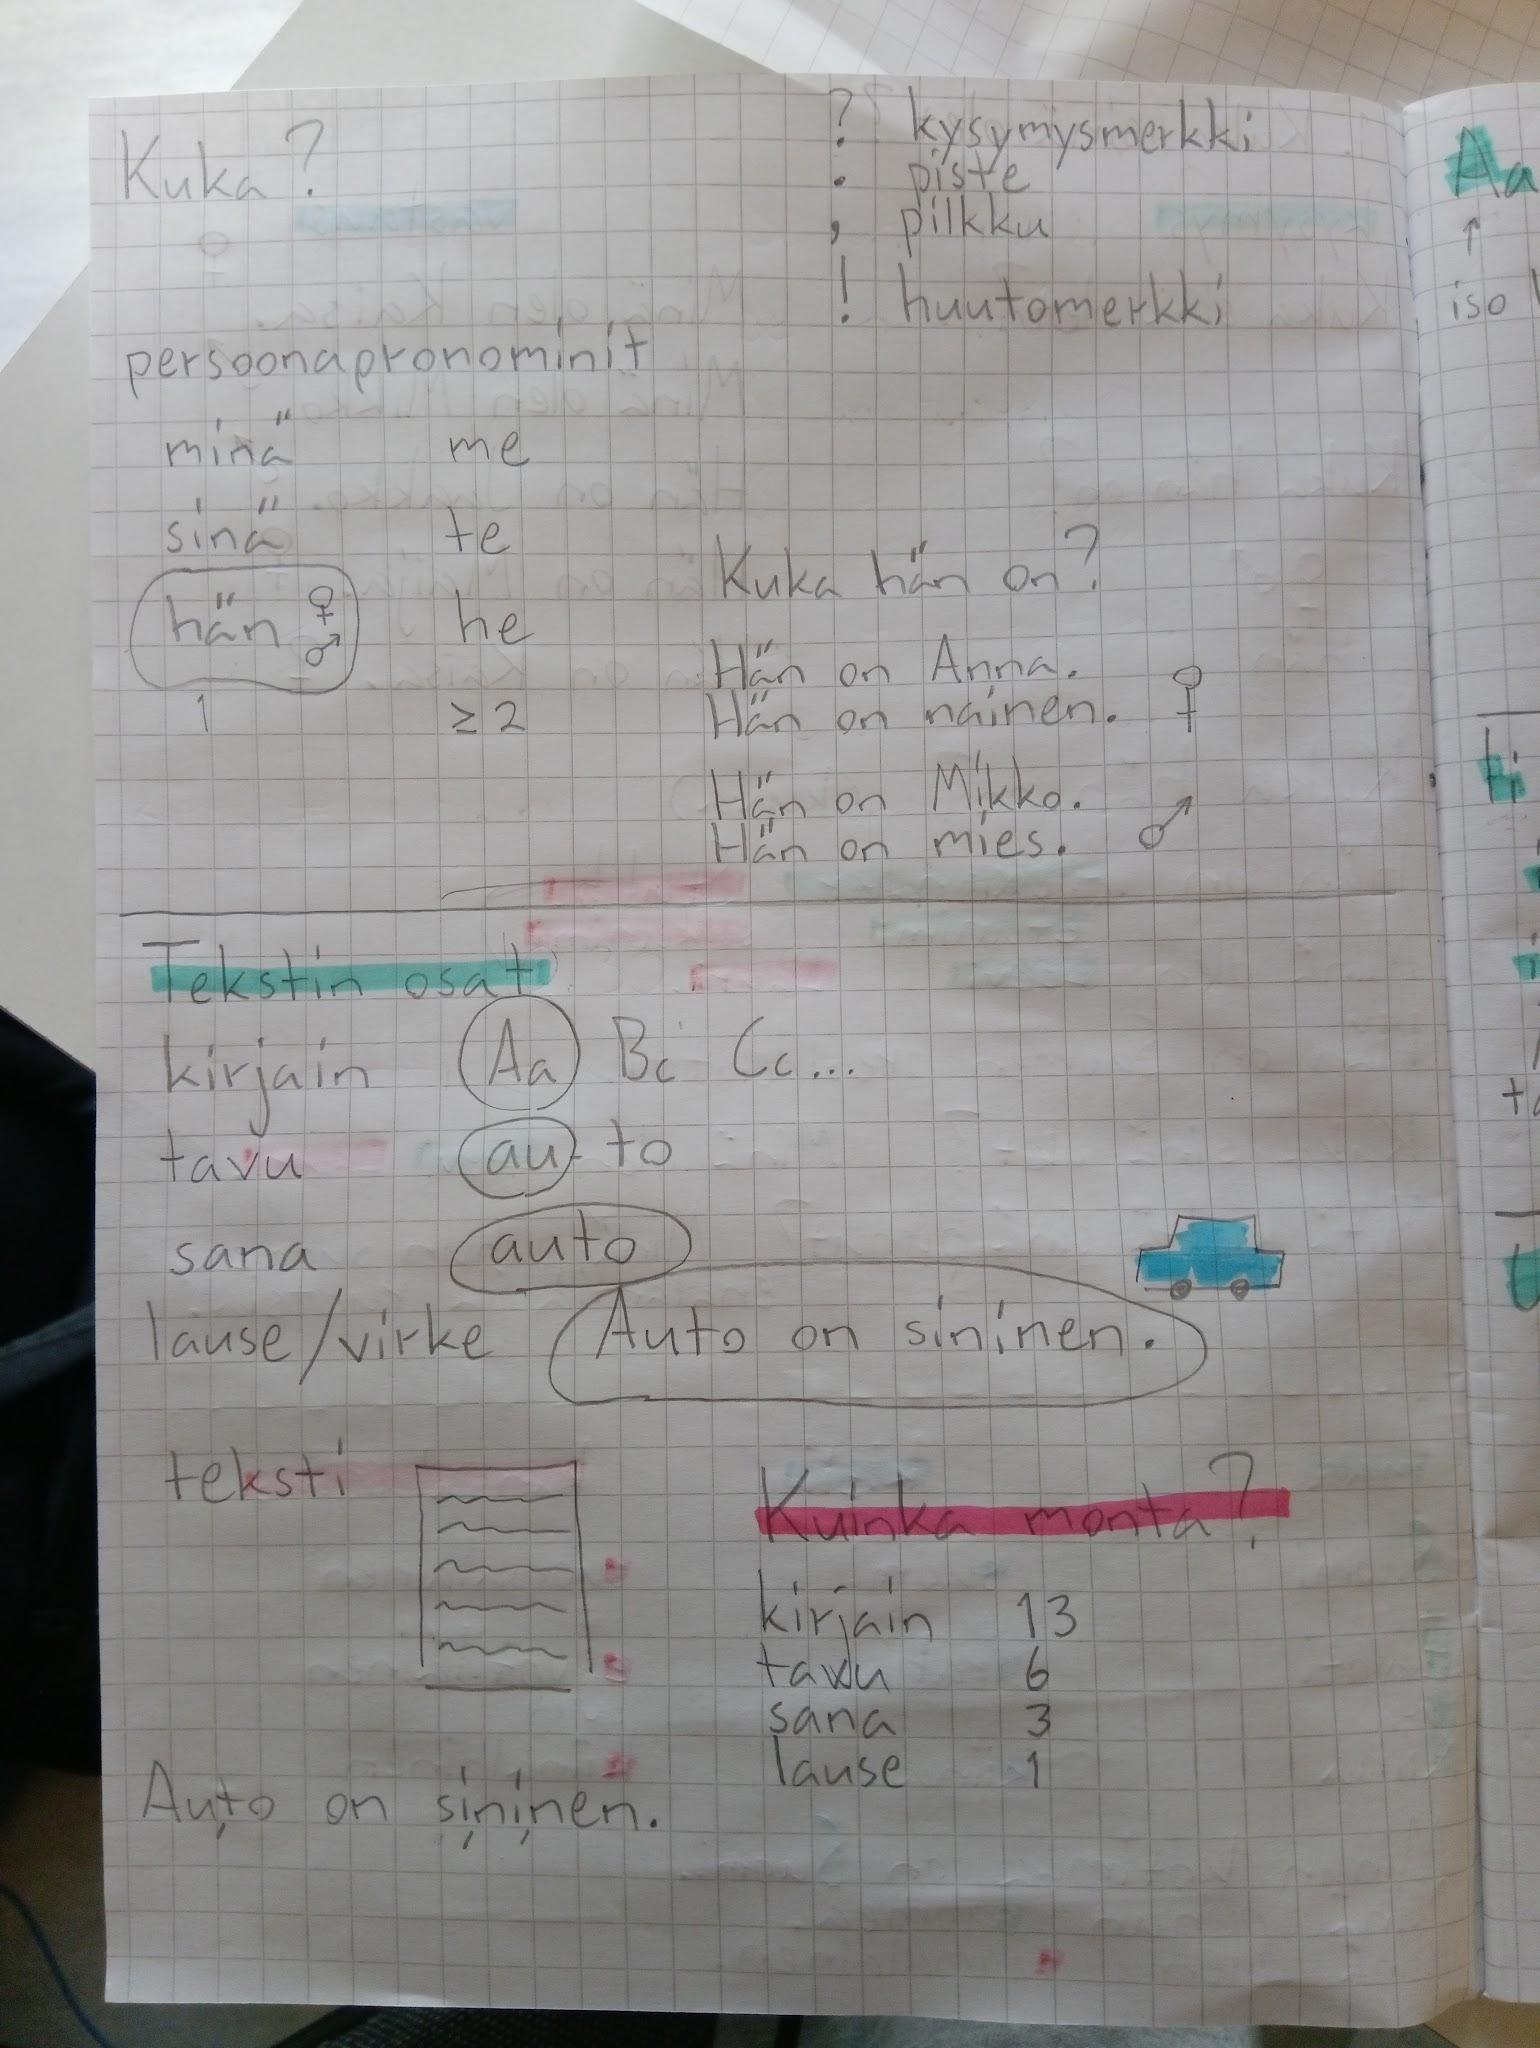 Kuka?
? kysymysmerkki
. piste
, pilkku
! huutomerkki
persoonapronominit
minä me
sinä te
hän ♀ ♂ he
1 ≥2
Kuka hän on?
Hän on Anna.
Hän on nainen. ♀
Hän on Mikko.
Hän on mies. ♂
Tekstin osat
kirjain Aa Bc Cc...
tavu au-to
sana auto
lause/virke Auto on sininen.
teksti
Kuinka monta?
kirjain 13
tavu 6
sana 3
lause 1
Auto on sininen.
Aa
↑
iso